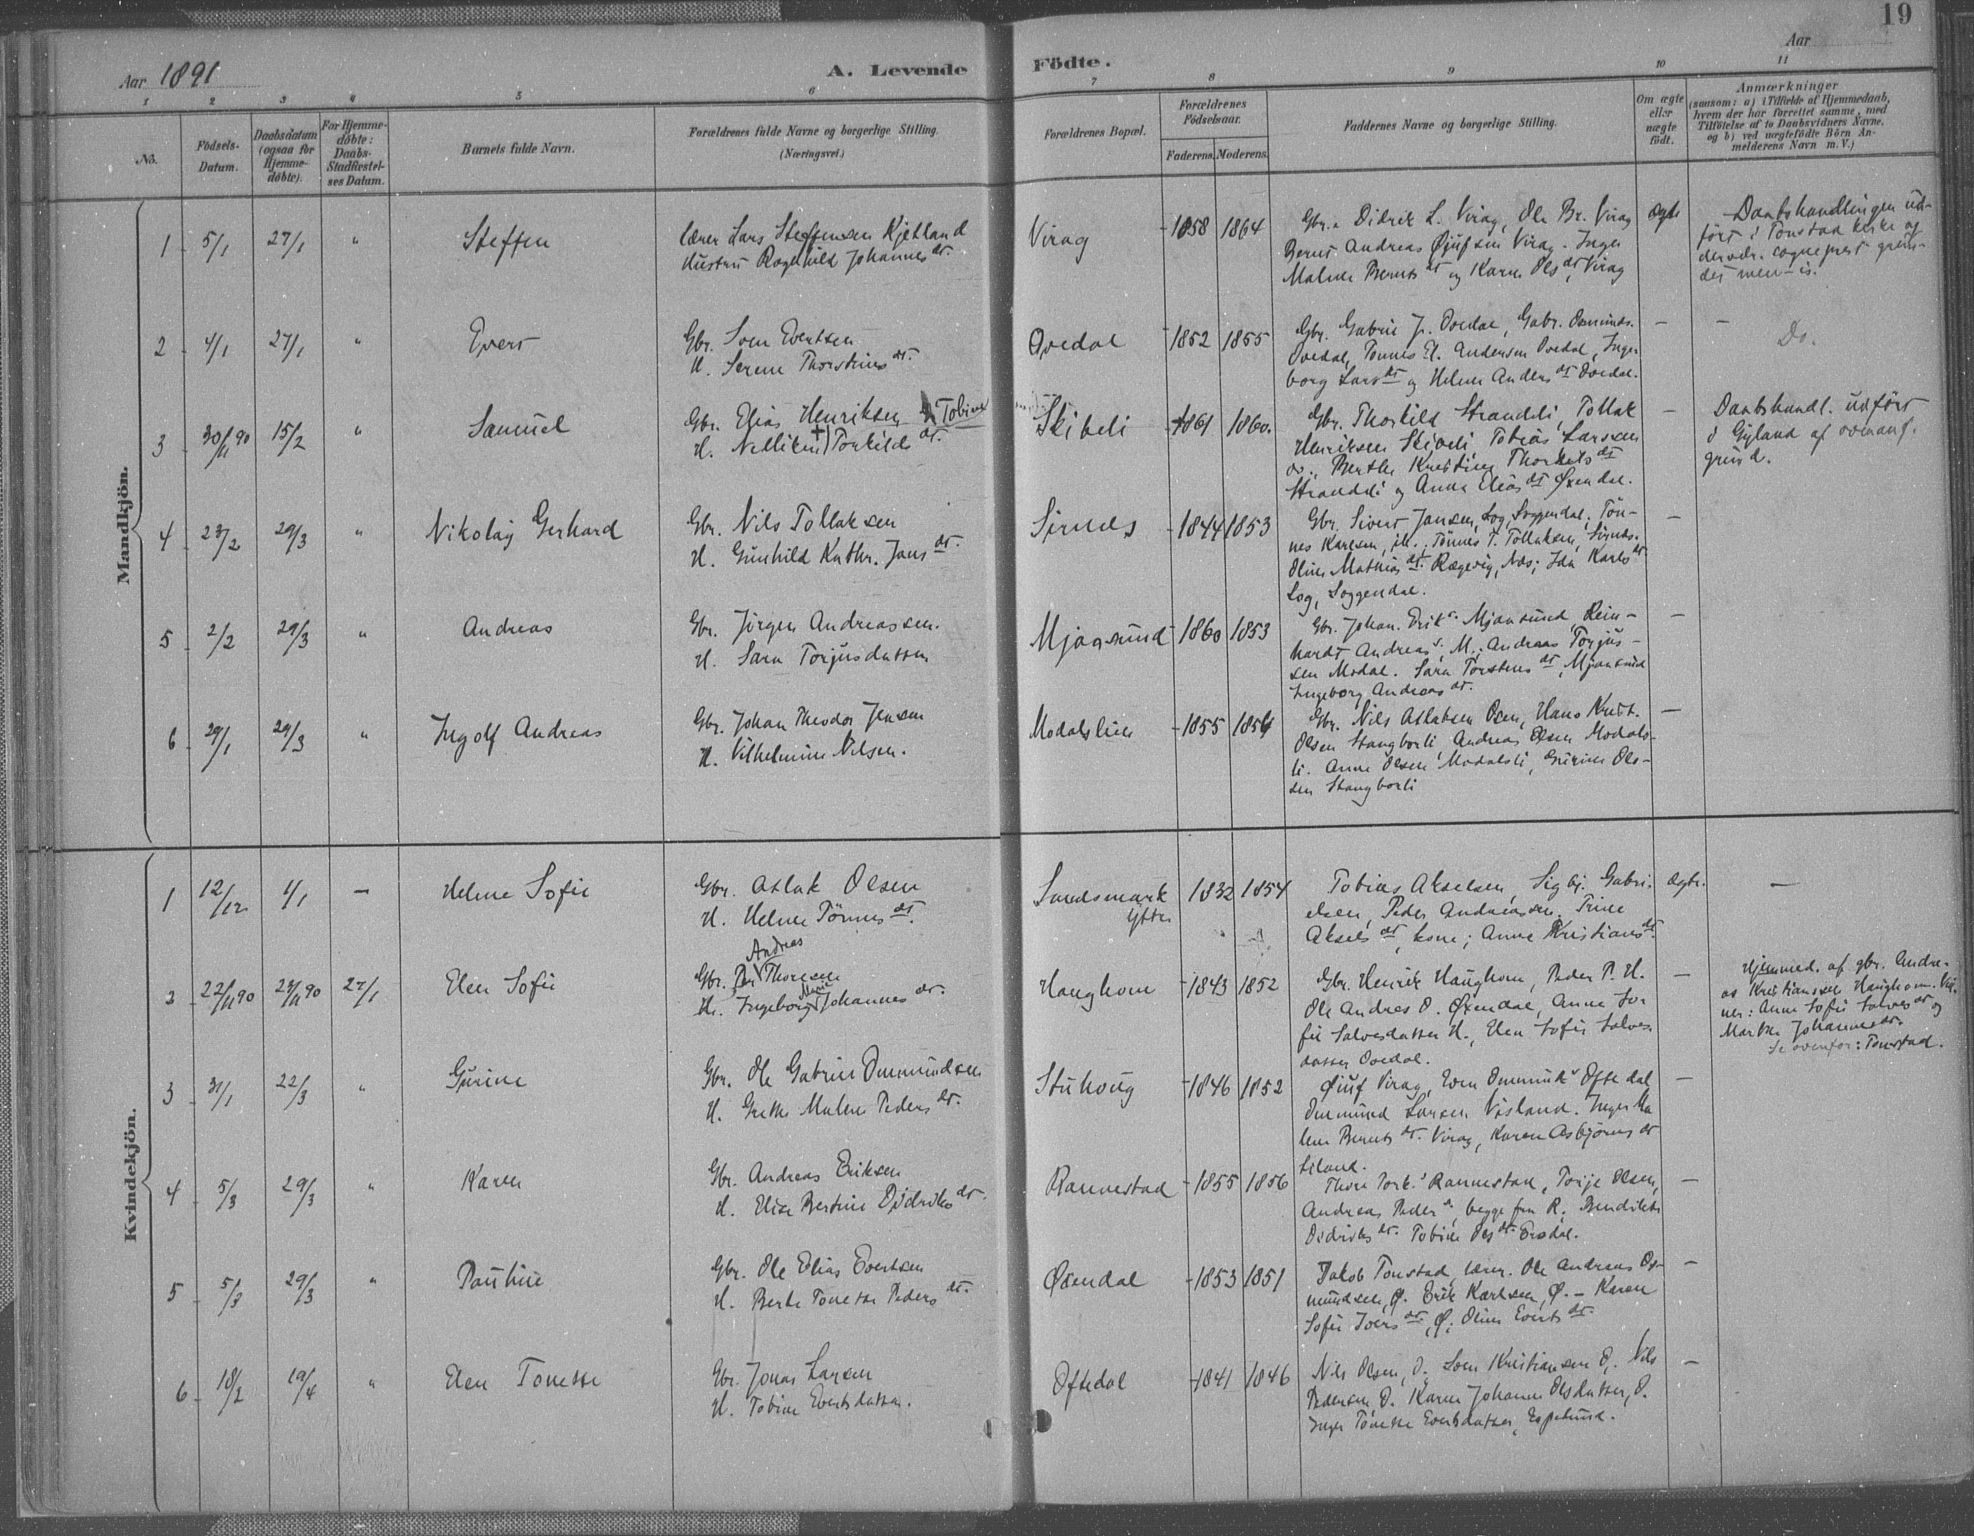 19
Aar 1891
A. Levende Födte.
Aar
1 2 3 4 5 6 7 8 9 10 11
No.
Födsels-Datum.
Daabsdatum (ogsaa for Hjemme-döbte).
For Hjemme-döbte: Daabs-Stadfæstel-ses Datum.
Barnets fulde Navn.
Forældrenes fulde Navne og borgerlige Stilling.
(Næringsvei.)
Forældrenes Bopæl.
Forældrenes Födselsaar.
Faderens. Moderens.
Faddernes Navne og borgerlige Stilling.
Om ægte eller uægte födt.
Anmærkninger
(saasom: a) i Tilfælde af Hjemmedaab,
hvem der har forrettet samme, med
Tilföielse af to Daabsvidners Navne,
og b) ved uægtefödte Börn An-
melderens Navn m. V.)
Mandkjön.
1 5/1 27/1 " Steffen
Lærer Lars Steffensen Kjetland
Hustru Ragnhild Johannesdt.
Virag 1858 1864
Gbr. Didrik L. Virag, Ole Br. Virag
Bernt Andreas Øjufsen Virag. Inger
Malene Berntsdt og Karen Olsdt Virag
Ægte
Daabshandlingen ud-
fört i Tonstad kirke af
2 4/1 27/1 " Evert
Gbr. Sven Evertsen
H. Serene Thorstinesdt.
Ovedal 1852 1855
Gbr. Gabriel J. Ovedal, Gabr. Osmunds.
Ovedal, Tönnes El. Andersen Ovedal, Inge-
borg Larsdt og Helene Andersdt Ovedal.
— —
Do.
3 30/11 90 15/2 " Samuel
Gbr. Elias Henriksen
Tobine
H. Nelliken Torkildsdt.
Skibeli 1861 1860.
Gbr. Thorkild Strandli, Tollak
Henriksen Skibeli, Tobias Larssen
do., Berthe Kristine Thorkelsdt
Strandli og Anna Eliasdt Øxendal.
—
Daabshandl. udfört
i Gyland af ovenanf.
grund.
4 23/2 29/3 " Nikolay Gerhard
Gbr. Nils Tollaksen
H. Gunhild Kathr. Jansdt.
Sirnes 1844 1853
Gbr. Sivert Jansen, Log, Loggendal, Tön-
nes Karlsen, ib., Tönnes T. Tollaksen, Sirnes.
Oline Mathiasdt. Rægevig, Nes; Ida Karlsdt
Log, Loggendal.
—
5 2/2 29/3 " Andreas
Gbr. Jörgen Andreassen.
H. Sara Torjusdatter
Mjaasund 1860 1853
Gbr. Johan Eriks. Mjaasund, Rein-
hardt Andreas s. M.; Andreas Torjus-
sen Modal. Sara Torstensdt, Mjaasund
Ingeborg Andreasdt.
—
6 29/1 29/3 " Ingolf Andreas
Gbr. Johan Theodor Jensen
H. Vilhelmine Nilsen.
Modalslien 1855 1854
Gbr. Nils Atlaksen Osen, Hans Knut.
Olsen Stangborli, Andreas Olsen Modals-
li. Anne Olsen Modalsli, Gurine Ols-
sen Stangborli
—
Kvindekjön.
1 12/12 1/1 — Helene Sofie
Gbr. Aslak Olsen
H. Helene Tönnesdt.
Sandsmark
Ytter
1832 1854
Tobias Akselsen, Sigbj. Gabri-
elsen, Peder Andreassen, Trine
Akselsdt, kone; Anne Kristiansdt.
Ægte.
—
2 22/11 90 24/11 90 27/1 Elen Sofie
Andreas
Gbr. Per Thoresen
Marie
H. Ingeborg Johannesdt.
Haughom 1843 1852
Gbr. Henrik Haughom, Peder P. H.
Ole Andreas O. Øxendal, Anne So-
fie Salvesdatter H., Elen Sofie Salves
datter Ovedal.
—
Hjemmed. af gbr. Andre-
as Kristiansen Haughom. Vid-
ner: Anne Sofie Salvesdt og
Marthe Johannesdt.
Se ovenfor: Tonstad.
3 31/1 22/3 " Gurine
Gbr. Ole Gabriel Ommundsen
H. Grethe Malene Pedersdt.
Stuhoug 1846 1852
Øjuf Virag, Sven Ommunds Oftedal
Ommund Larsen Visland. Inger Ma
lene Berntsdt. Virag, Karen Asbjörnsdt
Liland.
—
4 5/3 29/3 " Karen
Gbr. Andreas Eriksen
H. Elise Bertine Didriksdt.
Rannestad 1855 1856
Thore Tork.s Rannestad, Torje Olsen,
Andreas Peder s, begge fra R. Bendikte
Didriksdt. Tobine Olsdt. Ersdal.
—
5 5/3 29/3 " Pauline
Gbr. Ole Elias Evertsen
H. Berte Tonette Pedersdt.
Øxendal 1853 1851
Jakob Tonstad, lærer. Ole Andreas Os-
mundsen, Ø. Erik Karlsen, Ø. — Karen
Sofie Iversdt, Ø; Oline Evertsdt.
—
6 18/2 19/4 " Elen Tonette
Gbr. Jonas Larsen
H. Tobine Evertsdatter.
Oftedal 1841 1846
Nils Olsen, O. Sven Kristiansen O. Nils
Pedersen O. Karen Johanne Olsdatter, O.
Inger Tönette Evertsdatter, Espelund.
—